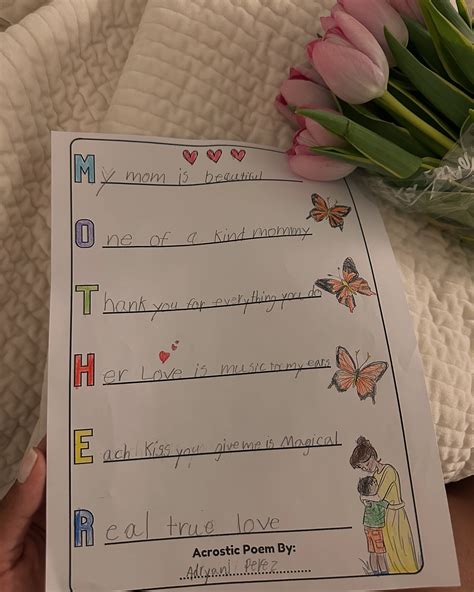 My mom is beautiful
One of a kind mommy
Thank you for everything you do
Her Love is music to my ears
Each Kiss you give me is Magical
Real true love
Acrostic Poem By:
Adryan Perez